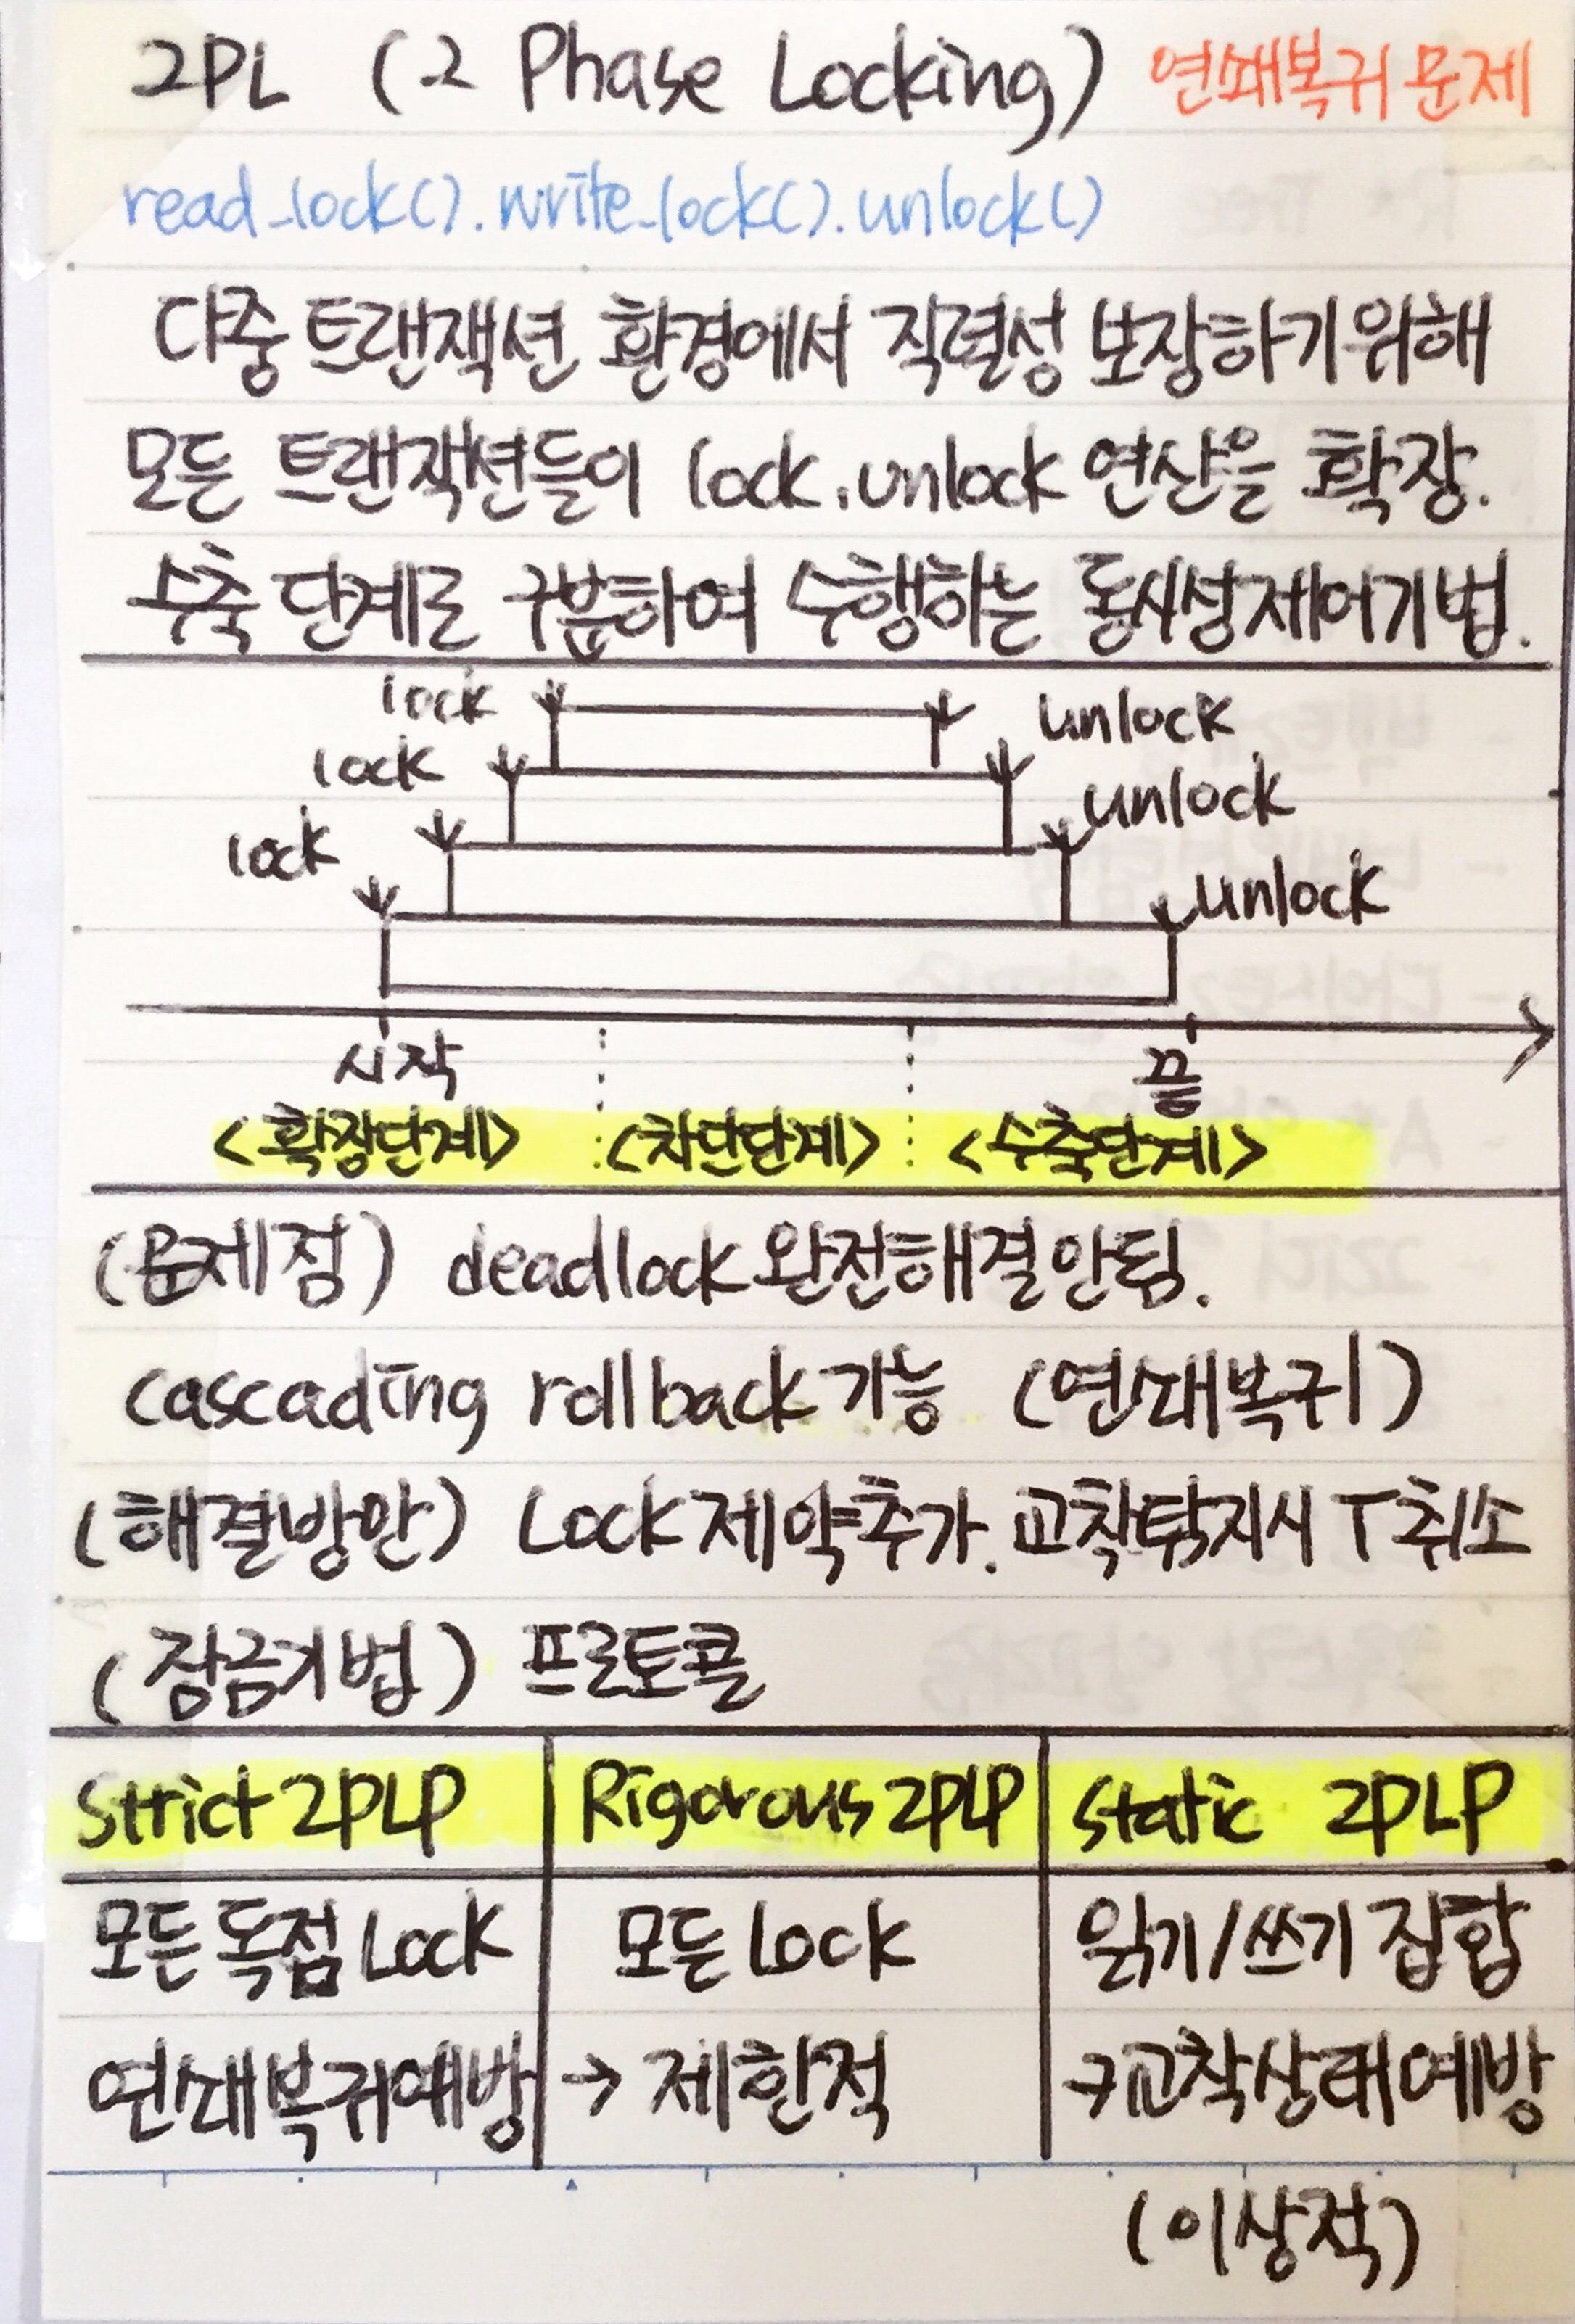 2PL (2 Phase Locking) 연쇄복귀 문제
read_lock(). write_lock(). unlock()
다중 트랜잭션 환경에서 직렬성 보장하기 위해
모든 트랜잭션들이 lock, unlock 연산을 확장.
수축 단계로 구분하여 수행하는 동시성제어기법.
lock unlock
lock unlock
lock unlock
시작 끝
<확장단계> <차단단계> <수축단계>
(문제점) deadlock 완전해결안됨.
cascading rollback 가능 (연쇄복귀)
(해결방안) Lock 제약추가. 교착탐지시 T 취소
(잠금기법) 프로토콜
Strict 2PLP Rigorous 2PLP Static 2PLP
모든 독점 Lock 모든 Lock 읽기/쓰기 집합
연쇄복귀예방 → 제한적 → 교착상태예방
(이상적)